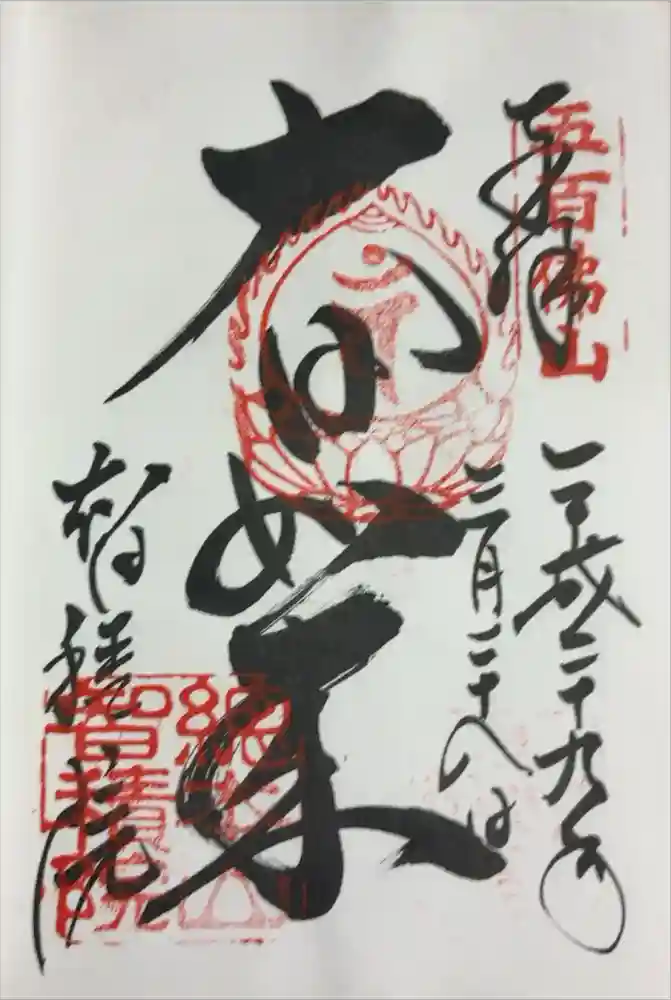 奉拝
五百佛山
平成二十九年
三月二十八日
大日如来
智積院
総本山
智積院